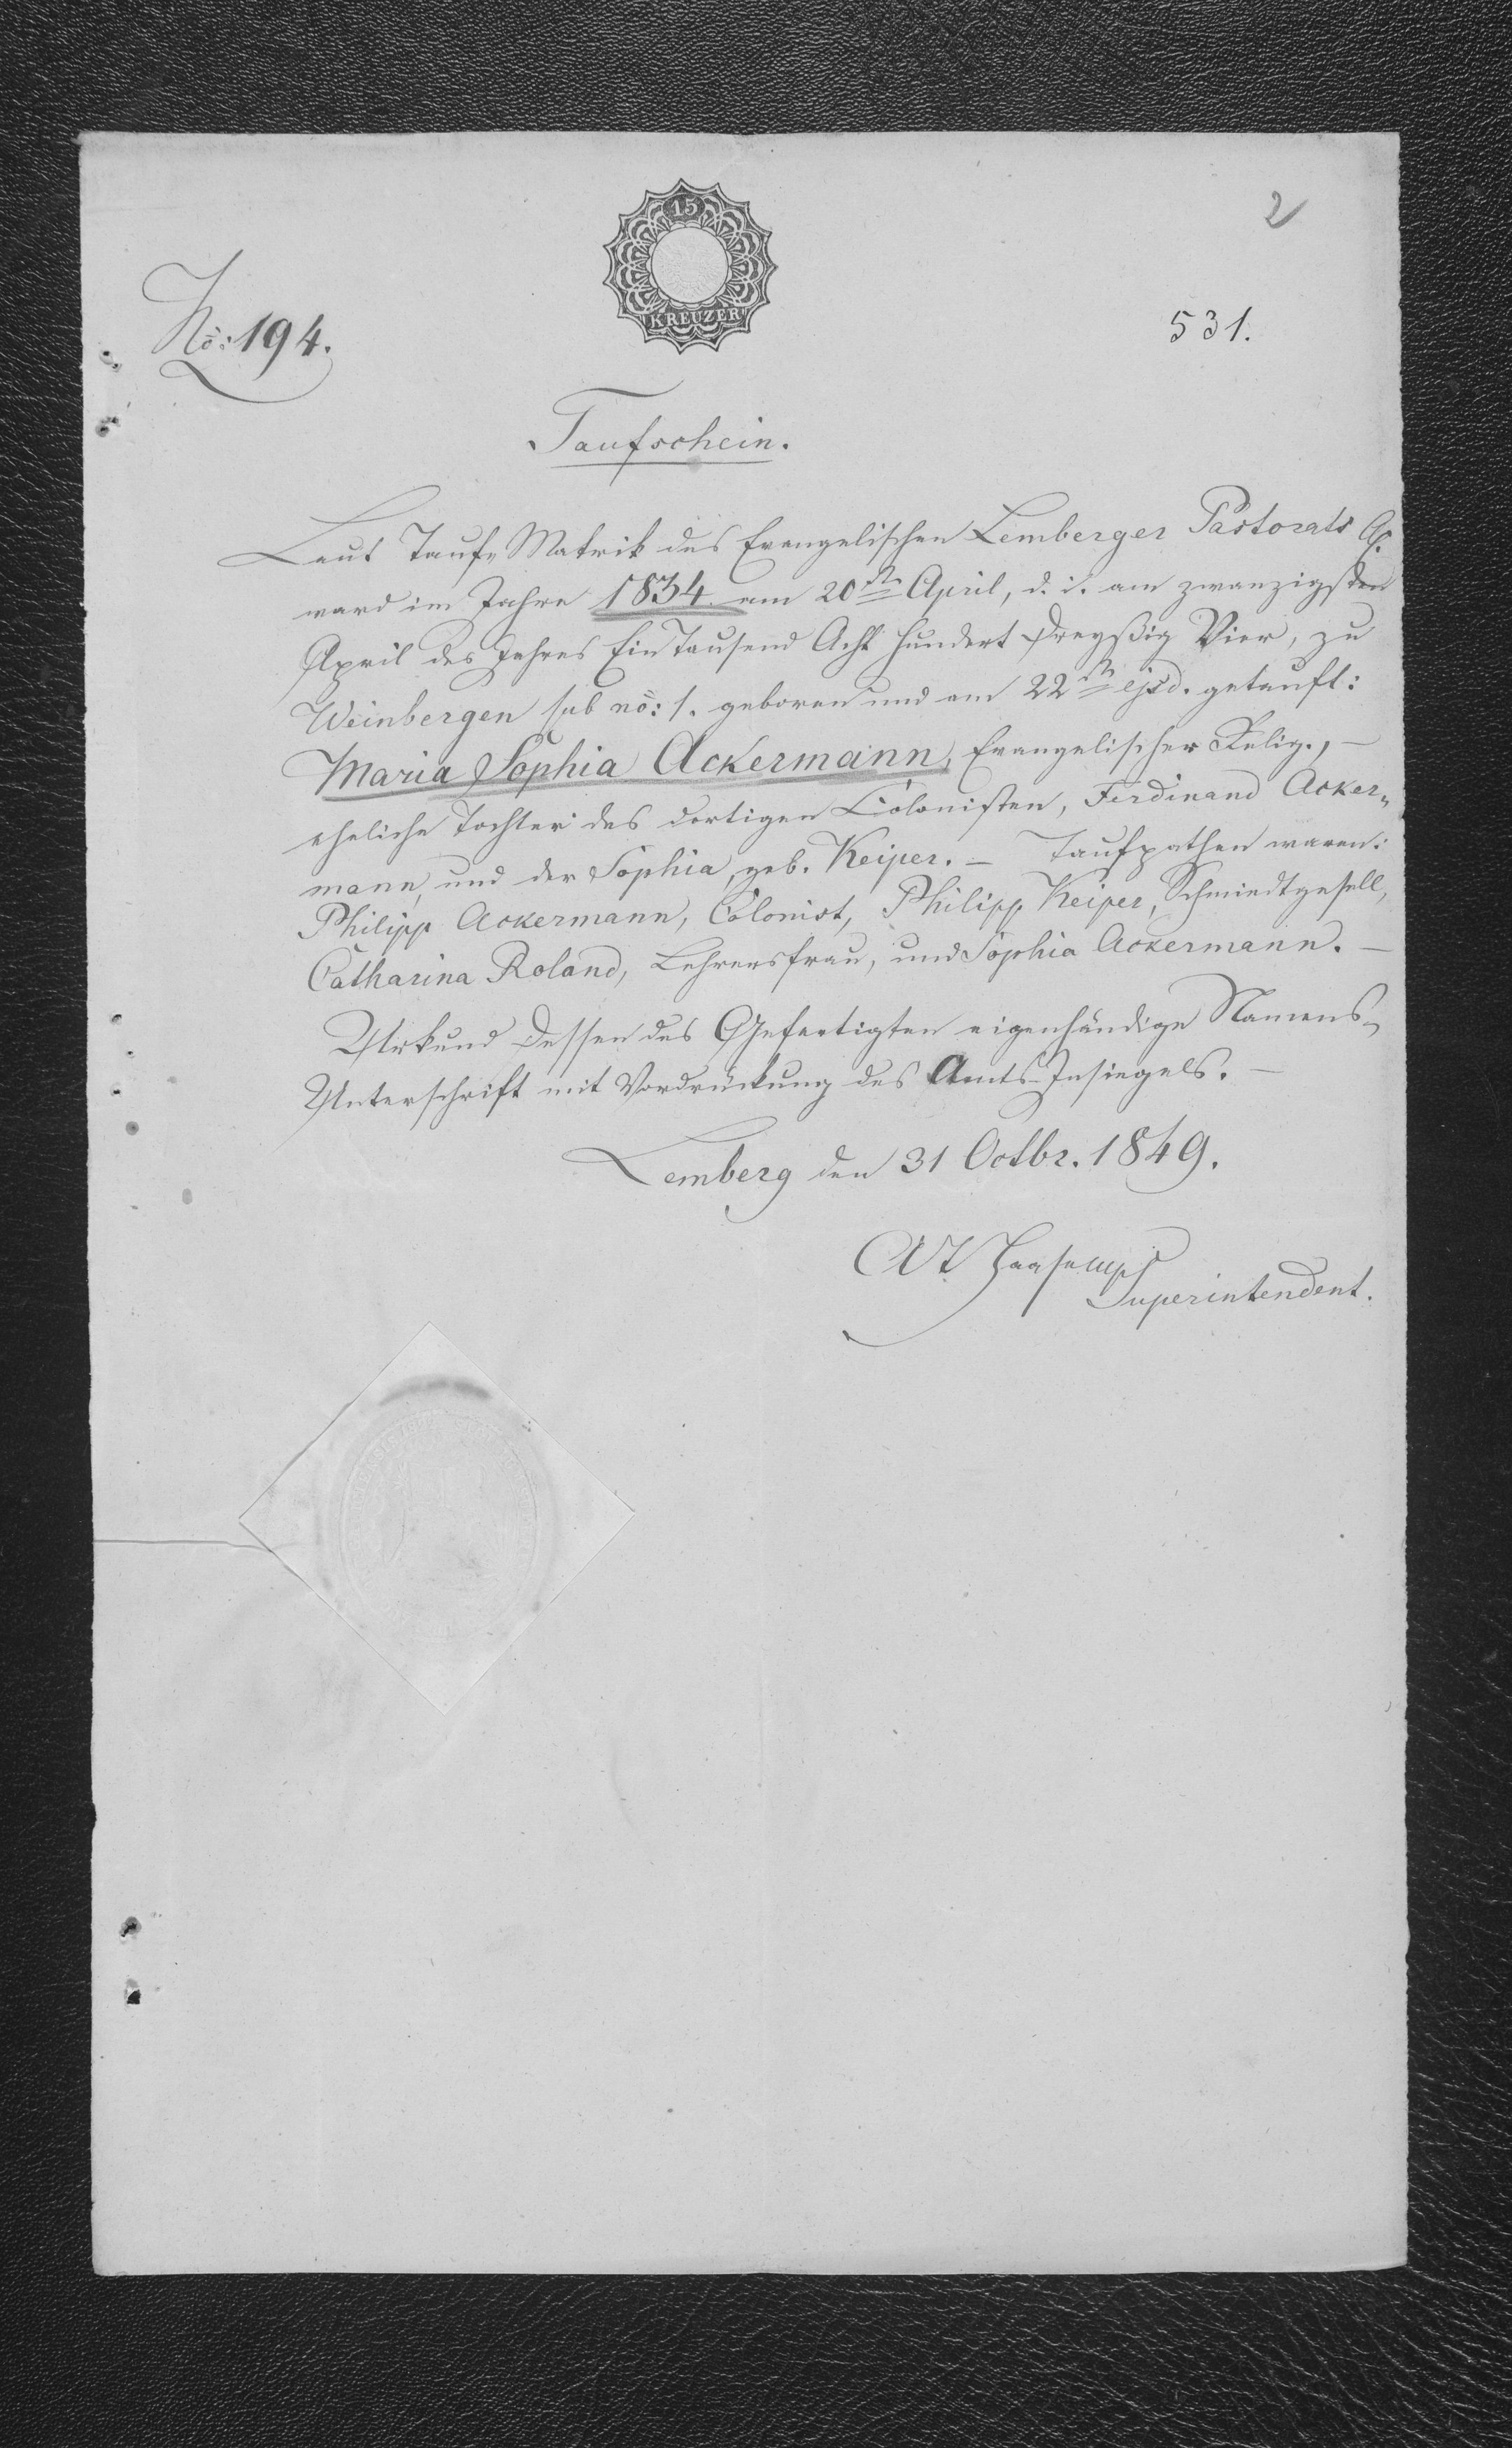 2
15
KREUZER
No: 194.
531.
Taufschein.
Laut Tauf-Matrik des Evangelischen Lemberger Pastorats
ward im Jahre 1834 am 20ten April, d. i. am zwanzigsten
April des Jahres Ein Tausend Acht Hundert Dreyßig Vier, zu
Weinbergen sub no: 1. geboren und am 22ten ejsd. getauft:
Maria Sophia Ackermann, Evangelischer Relig., –
eheliche Tochter des dortigen Colonisten, Ferdinand Acker-
mann, und der Sophia, geb. Keiper. – Taufpathen waren:
Philipp Ackermann, Colonist, Philipp Keiper, Schmiedtgesell,
Catharina Roland, Lehrersfrau, und Sophia Ackermann. –
Urkund dessen des Gefertigten eigenhändige Namens-
Unterschrift mit Vordrückung des Amts-Insiegels. –
Lemberg den 31 Octbr. 1849.
Haase
Superintendent.